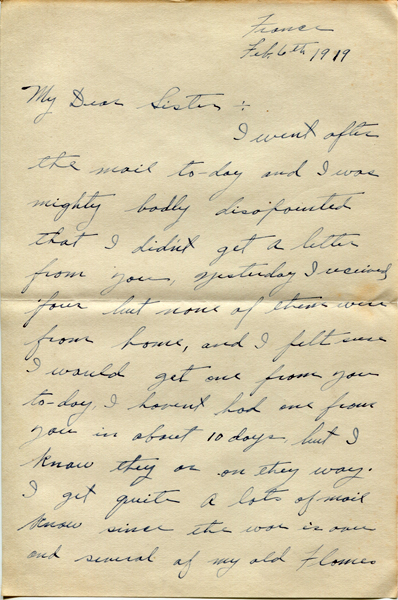 France
Feb. 6th 1919
My Dear Sister :-
I went after
the mail to-day and I was
mighty badly disapointed
that I didn't get a letter
from you, yesterday I received
four but none of them were
from home, and I felt sure
I would get one from you
to-day. I havent had one from
you in about 10 days but I
know they or on they way.
I get quite a lots of mail
know since the war is over
and several of my old Flames